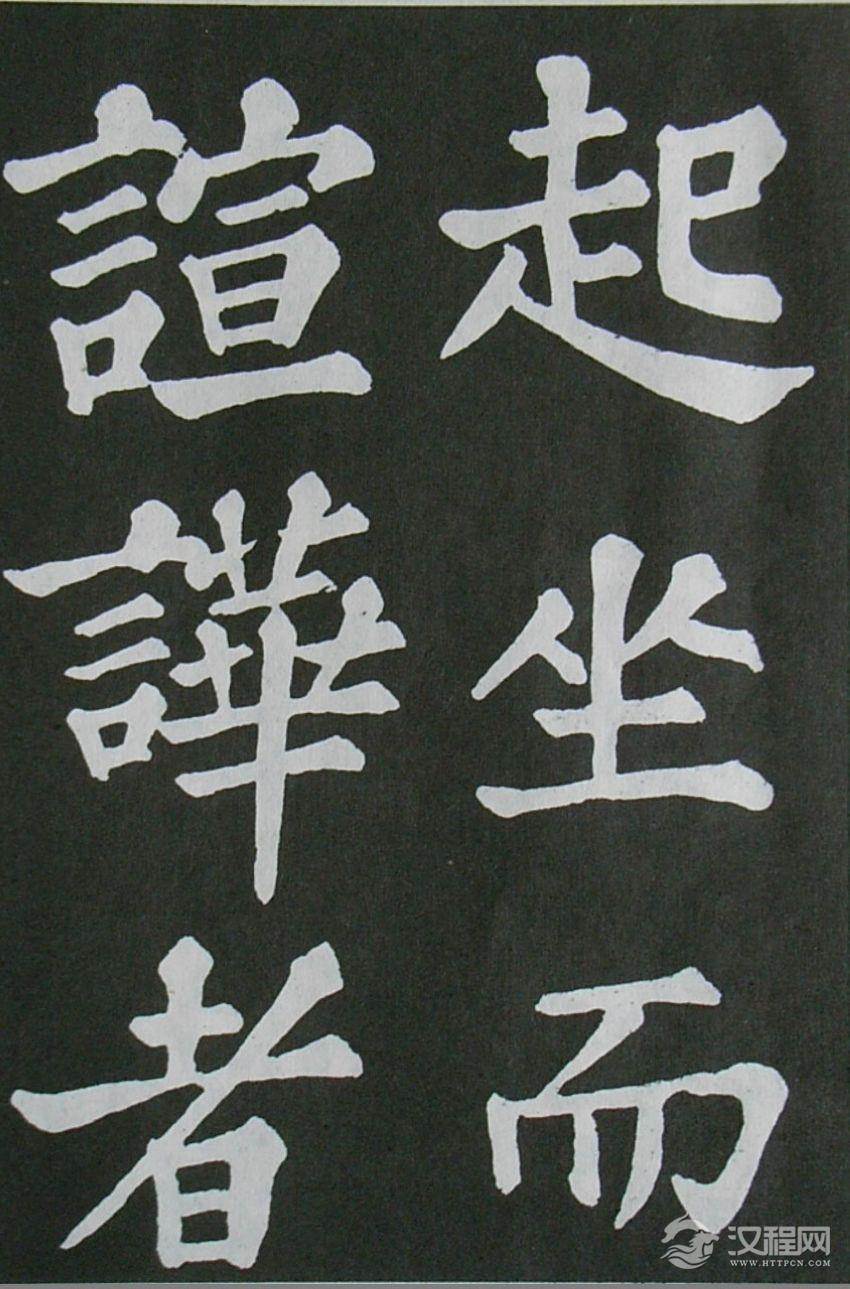 起坐而
諠譁者
汉程网
WWW.HTTPCN.COM